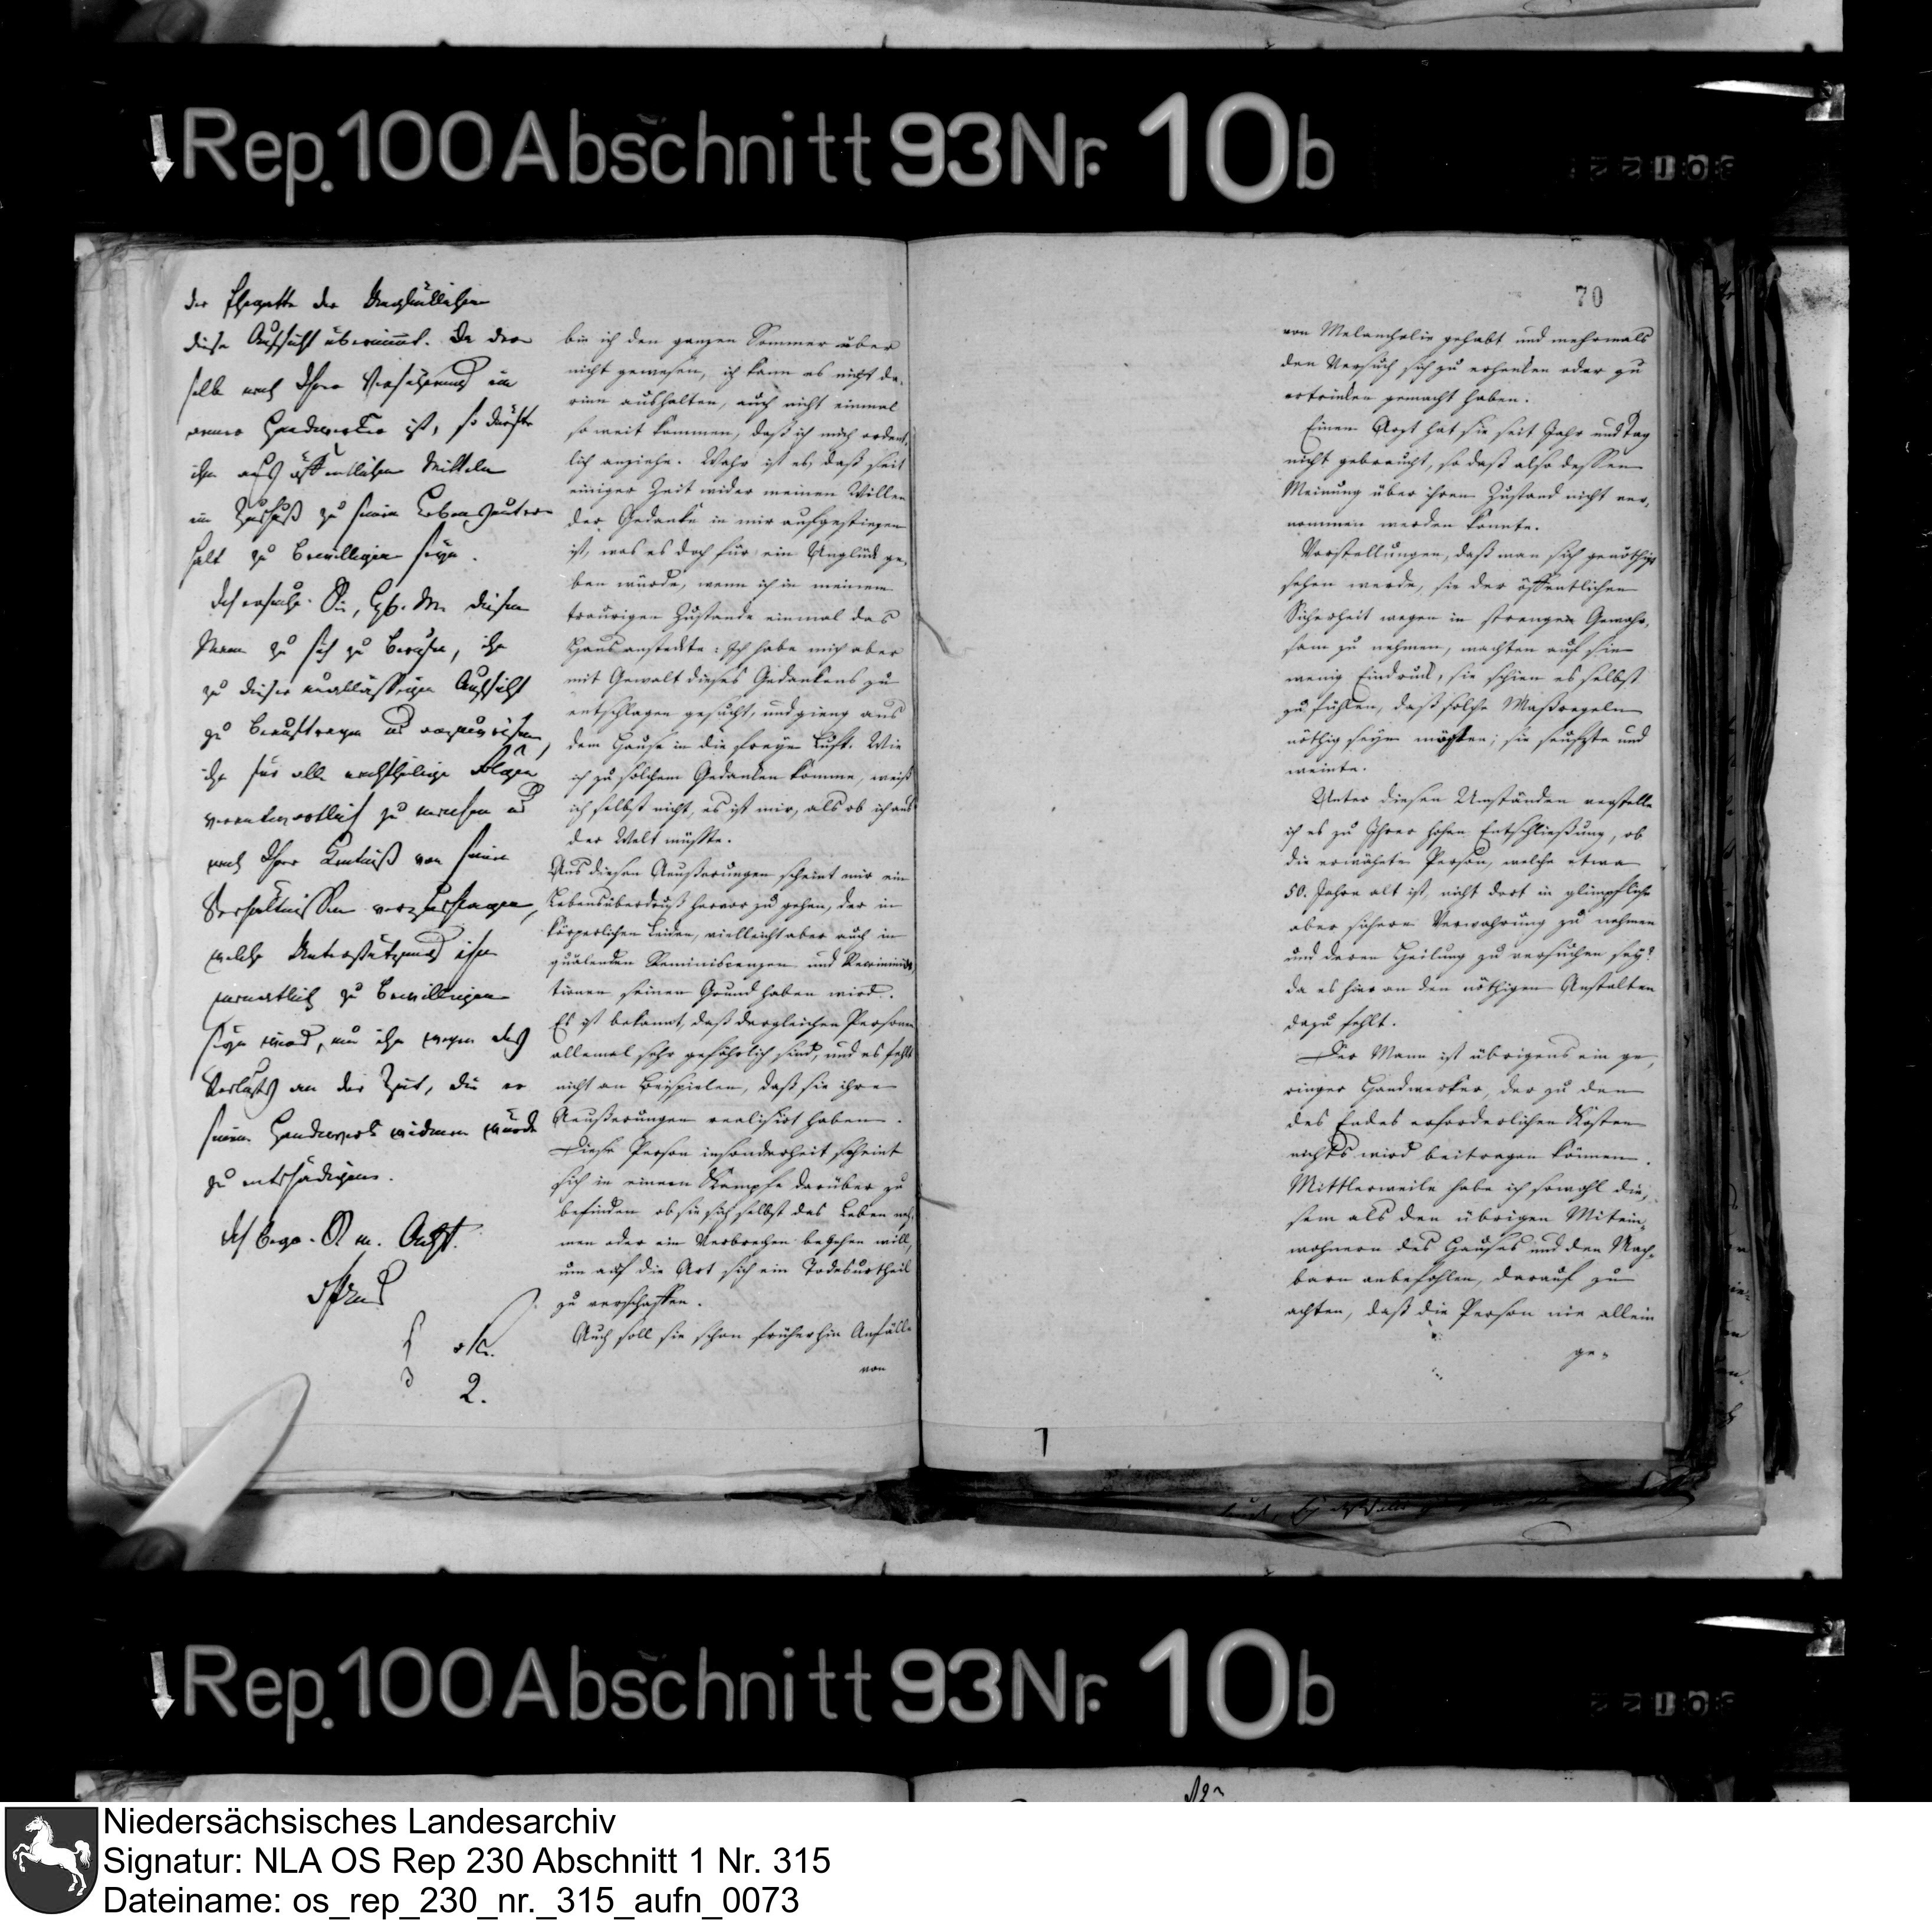 ↓Rep.100Abschnitt 93Nr. 10b
der Ehegatte der Unglücklichen
diese Aufsicht übernimmt. Da der
selbe nach Ihrer Versicherung ein
armer Handwerker ist, so dürfte
ihm aus öffentlichen Mitteln
ein Zuschuß zu seinem Lebensunter
halt zu bewilligen seyn.
Ich ersuche Sie, diesen
Mann zu sich zu berufen, ihn
zu dieser unablässigen Aufsicht
zu beauftragen und anzuweisen,
ihn für alle nachtheilige Folgen
verantwortlich zu machen und
nach Ihrer Kentniß von seinen
Verhältnissen vorzuschlagen,
welche Unterstützung ihm
monatlich zu bewilligen
seyn wird, um ihn wegen des
Verlusts an der Zeit, die er
seinem Handwerk widmen würde
zu entschädigen.
2.
bin ich den ganzen Sommer über
nicht gewesen, ich kann es nicht da-
rinn aushalten, auch nicht einmal
so weit kommen, daß ich mich ordent-
lich anziehe. Wahr ist es, daß seit
einiger Zeit wider meinen Willen
der Gedanke in mir aufgestiegen
ist, was es doch für ein Unglück ge-
ben würde, wenn ich in meinem
traurigen Zustande einmal das
Haus ansteckte: Ich habe mich aber
mit Gewalt dieses Gedankens zu
entschlagen gesucht, und gieng aus
dem Hause in die freye Luft. Wie
ich zu solchem Gedanken komme, weiß
ich selbst nicht, es ist mir, als ob ich aus
der Welt müßte.
Aus diesen Aeußerungen scheint mir ein
Lebensüberdruß hervor zu gehen, der in
körperlichen Leiden, vielleicht aber auch in
quälenden Reminiscenzen und
tionen seinen Grund haben wird.
Es ist bekannt, daß dergleichen Personen
allemal sehr gefährlich sind, und es fehlt
nicht an Beispielen, daß sie ihre
Aeußerungen realisirt haben.
Diese Person insonderheit scheint
sich in einem Kampfe darüber zu
befinden ob sie sich selbst das Leben neh-
men oder ein Verbrechen begehen will,
um auf die Art sich ein Todesurtheil
zu verschaffen.
Auch soll sie schon früherhin Anfälle
von
70
von Melancholie gehabt und mehrmals
den Versuch sich zu erhenken oder zu
ertrinken gemacht haben.
Einen Arzt hat sie seit Jahr und Tag
nicht gebraucht, so daß also dessen
Meinung über ihren Zustand nicht ver-
nommen werden konnte.
Vorstellungen, daß man sich genöthigt
sehen werde, sie der öffentlichen
Sicherheit wegen in strengen Gewahr-
sam zu nehmen, machten auf sie
wenig Eindruck, sie schien es selbst
zu fühlen, daß solche Maßregeln
nöthig seyn mögten; sie seufzte und
weinte.
Unter diesen Umständen verstelle
ich es zu Ihrer hohen Entschließung, ob
die erwähnte Person, welche etwa
50. Jahre alt ist, nicht dort in glimpfliche
aber sichere Verwahrung zu nehmen
und deren Heilung zu versuchen sey?
da es hier an den nöthigen Anstalten
dazu fehlt.
Der Mann ist übrigens ein ge-
ringer Handwerker, der zu den
des Endes erforderlichen Kosten
nichts wird beitragen können.
Mittlerweile habe ich sowohl die-
sem als den übrigen Mitein-
wohnern des Hauses und den Nach-
barn anbefohlen, darauf zu
achten, daß die Person nie allein
ge-
↓Rep.100Abschnitt 93Nr. 10b
Niedersächsisches Landesarchiv
Signatur: NLA OS Rep 230 Abschnitt 1 Nr. 315
Dateiname: os_rep_230_nr._315_aufn_0073